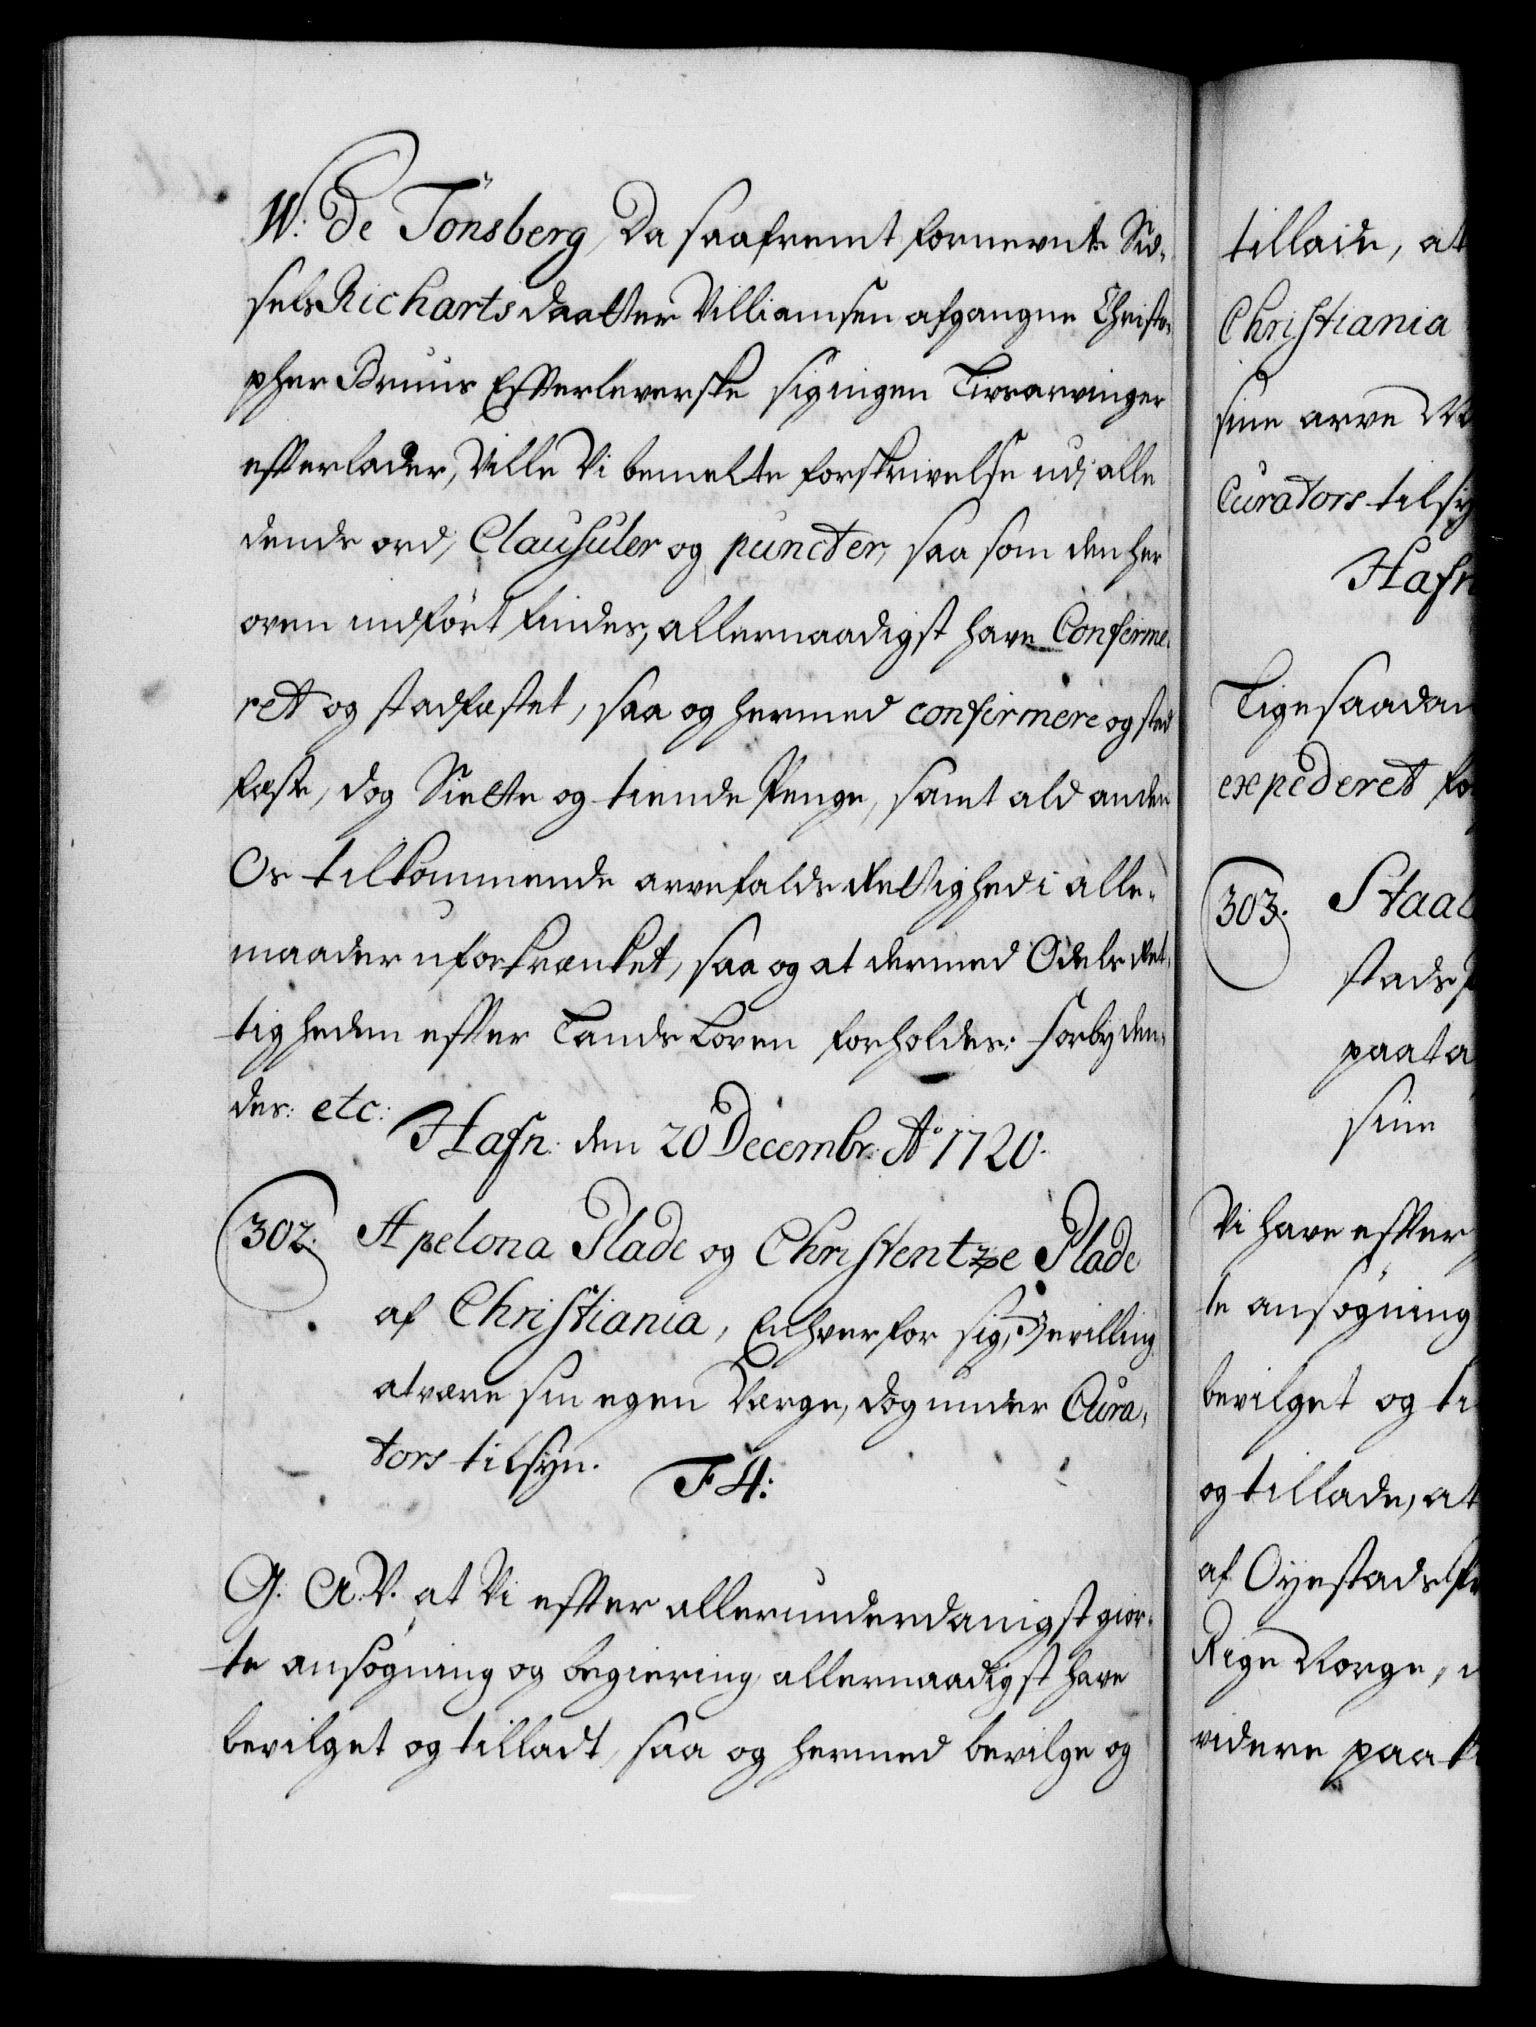 W: de Tönsberg, Da saafremt fornevnte Sid-
sels Richarts daatter Villiamsen afgangne Christo-
pher Bruus Efterleverske sig ingen Livsarvinger
efterlader, Ville Vi bemelte forskrivelse udj alle
dends ord, Clausuler og puncter, saa som den her
oven indført findes, allernaadigst have Confirme-
ret og stadfæstet, saa og hermed confirmere og stad
fæste, dog Siette og tiende Penge, samt ald anden
Os tilkommende arvefalds Rettighed i alle-
maader uforkrænket, saa og at dermed Odels Ret-
tigheden efter Lands Loven forholdes: forbyden-
des: etc:
Hafn: den 20 Decembr: Aº 1720.
302. Apelona Plade og Christentze Plade
af Christiania, Enhver for sig, Bevilling
at være sin egen Værge, dog under Cura-
tors tilsyn.
F 4:
G. A. V. at Vi efter allerunderdanigst gior-
te ansøgning og begiering allernaadigst have
bevilget og tilladt, saa og hermed bevilge og
tillade, at
Christiania
sine arve
Curators tilsy
Hafn
Ligesaadan
expederet fo
303. Staal
stads
paata
sine
Vi have efter
te ansøgning
bevilget og ti
og tillade, at
af Oyestads Pr
Rige Norge,
videre paa